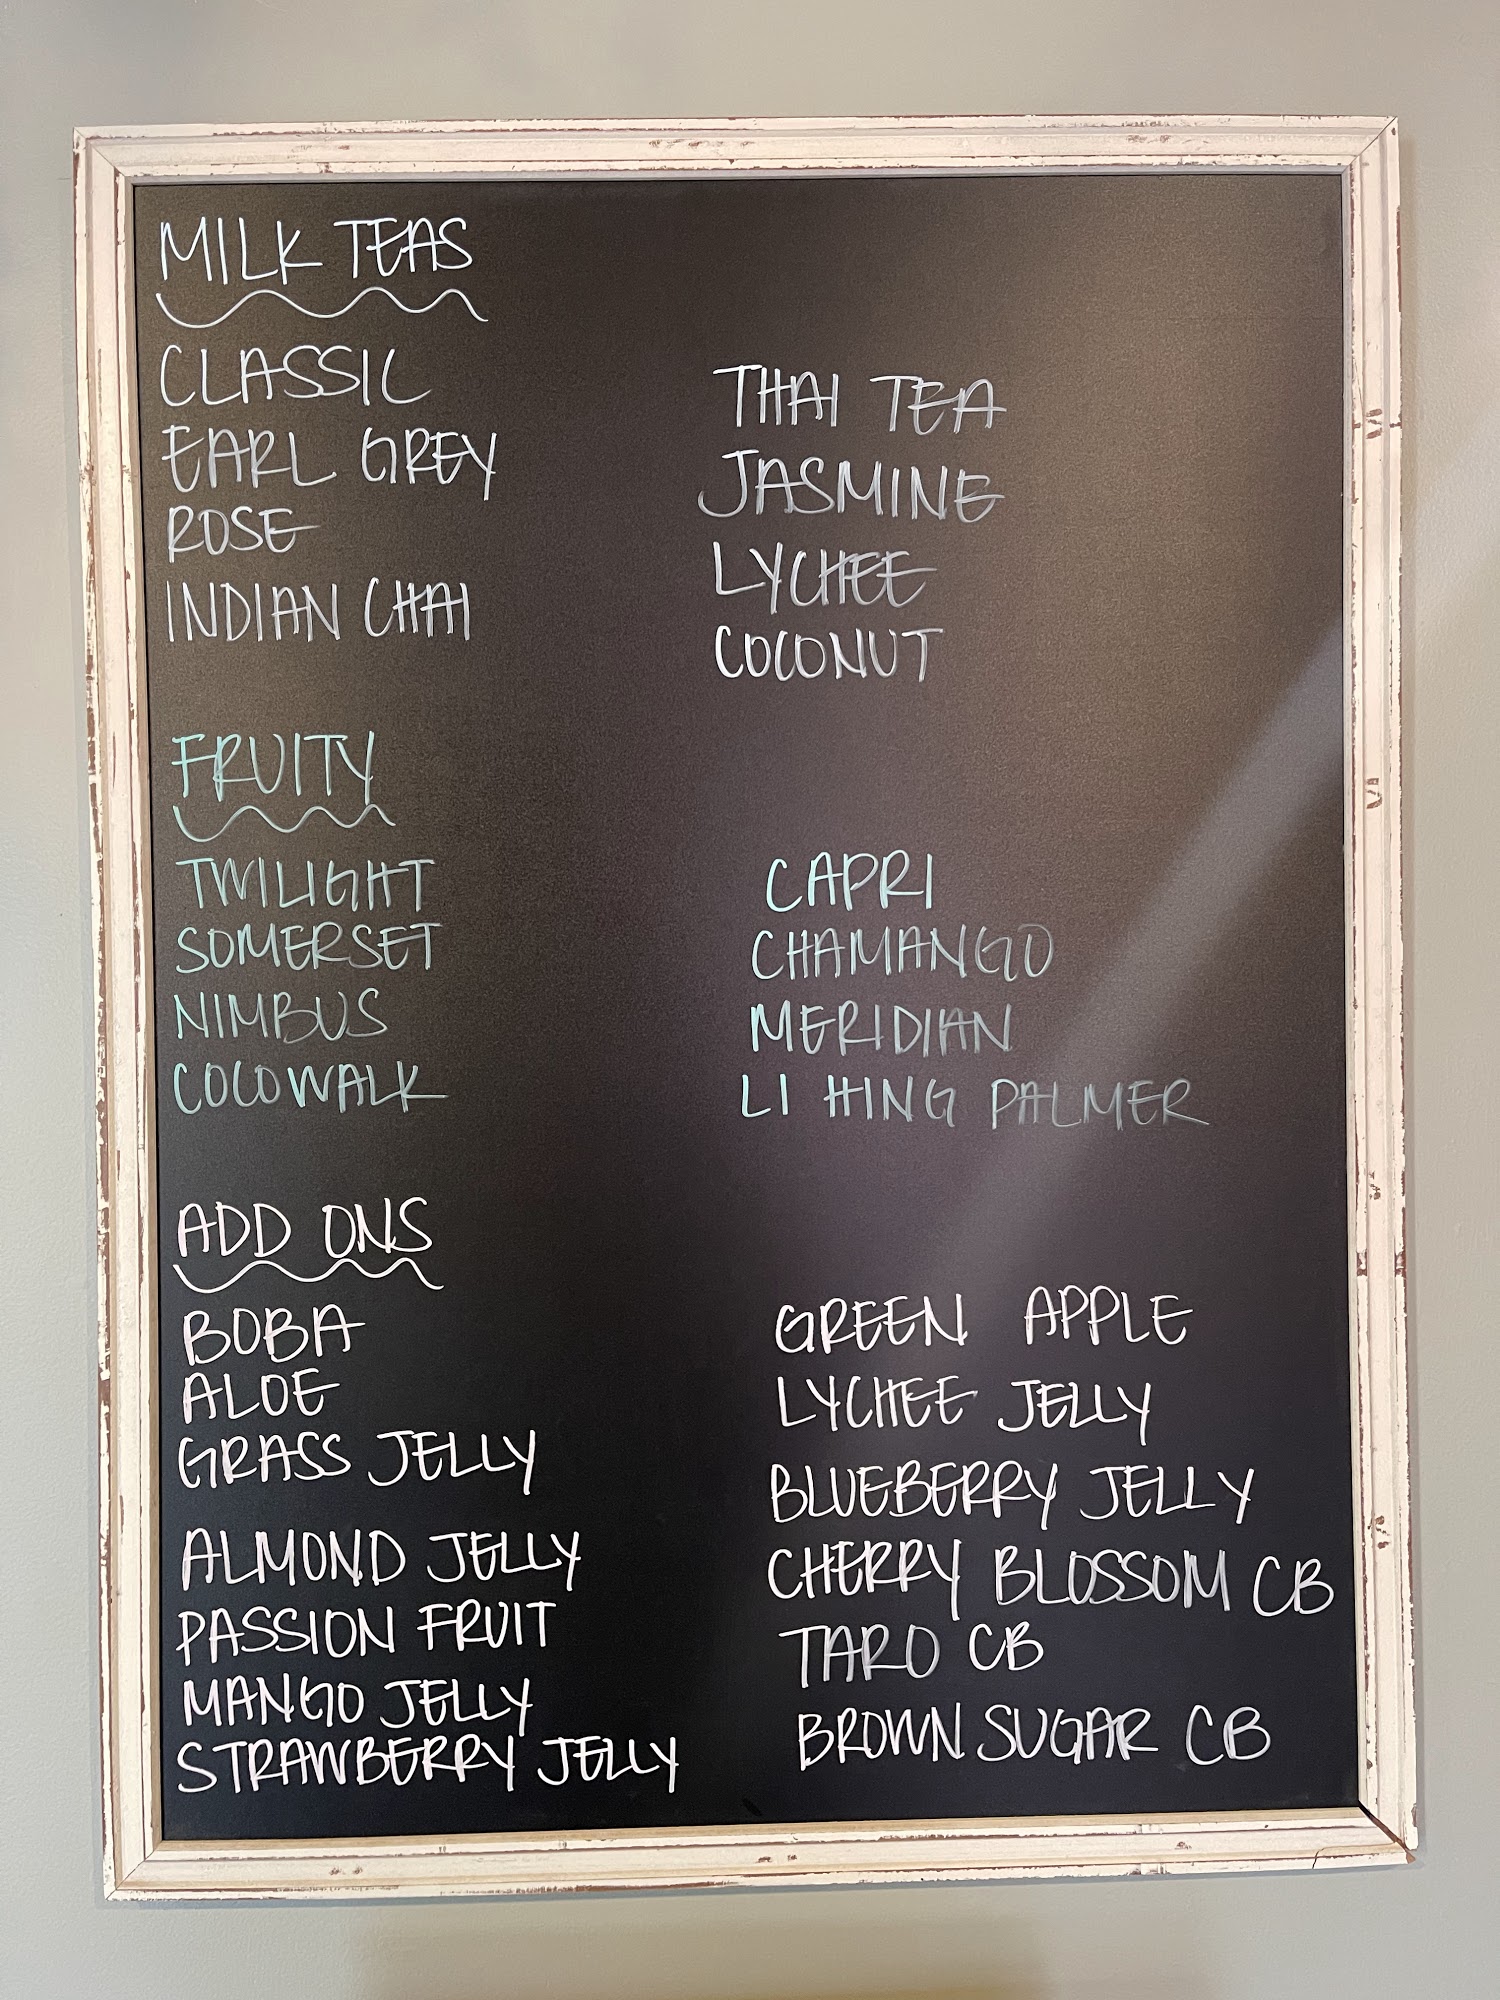 MILK TEAS
CLASSIC
EARL GREY
ROSE
INDIAN CHAI
THAI TEA
JASMINE
LYCHEE
COCONUT
FRUITY
TWILIGHT
SOMERSET
NIMBUS
COCOWALK
CAPRI
CHAMANGO
MERIDIAN
LI HING PALMER
ADD ONS
BOBA
ALOE
GRASS JELLY
ALMOND JELLY
PASSION FRUIT
MANGO JELLY
STRAWBERRY JELLY
GREEN APPLE
LYCHEE JELLY
BLUEBERRY JELLY
CHERRY BLOSSOM CB
TARO CB
BROWN SUGAR CB